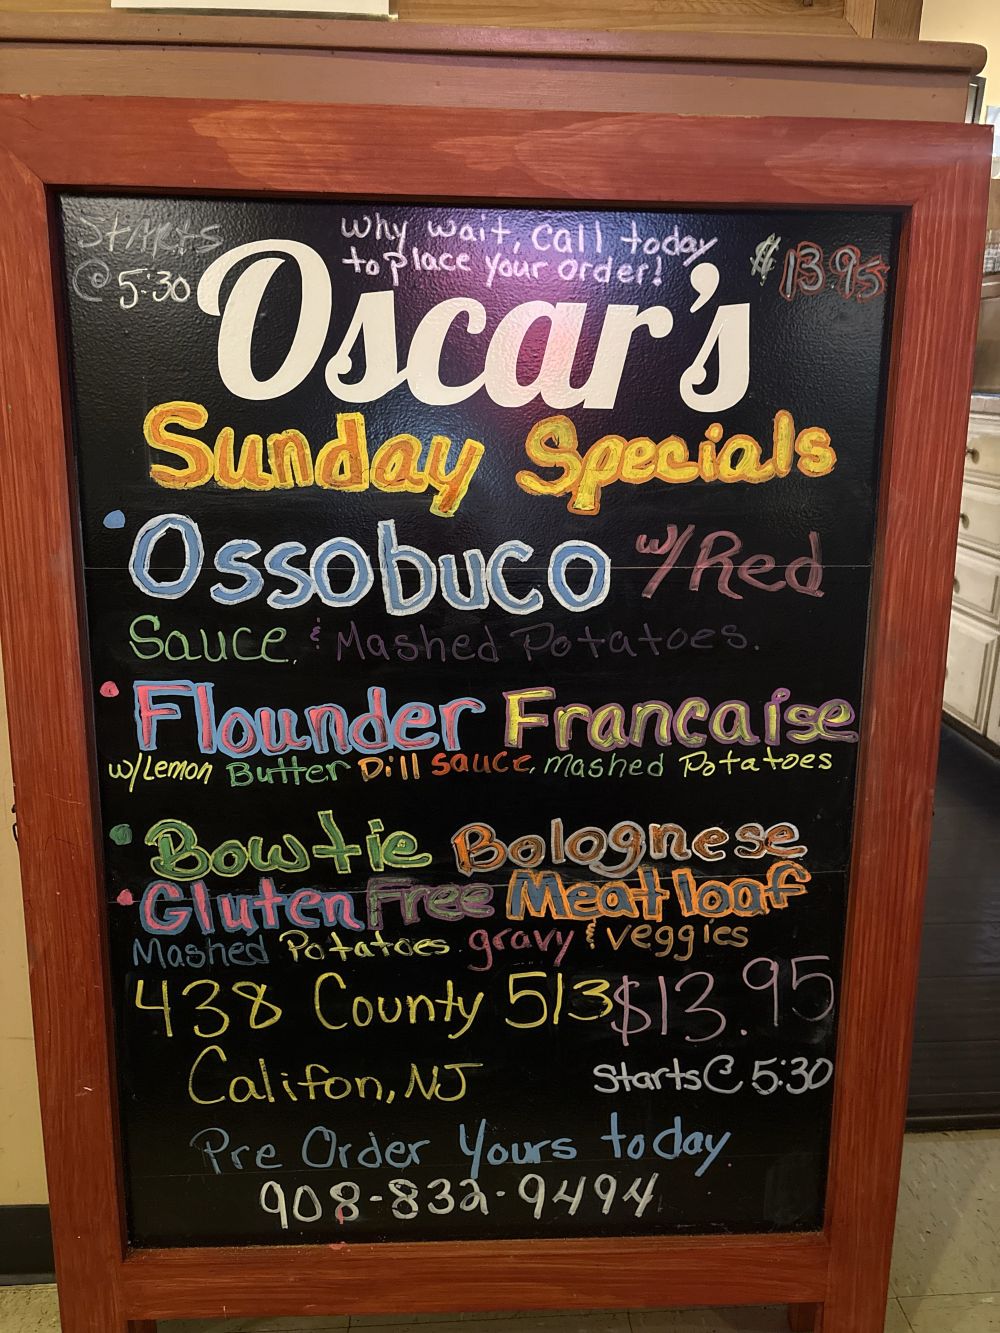 Starts
@ 5:30
Why wait, Call today
to place your order!
$13.95
Oscar's
Sunday Specials
• Ossobuco w/ Red
Sauce, & Mashed Potatoes.
• Flounder Francaise
w/ Lemon Butter Dill Sauce, Mashed Potatoes
• Bowtie Bolognese
• Gluten Free Meatloaf
Mashed Potatoes gravy & veggies
438 County 513 $13.95
Califon, NJ Starts @ 5:30
Pre Order Yours today
908-832-9494